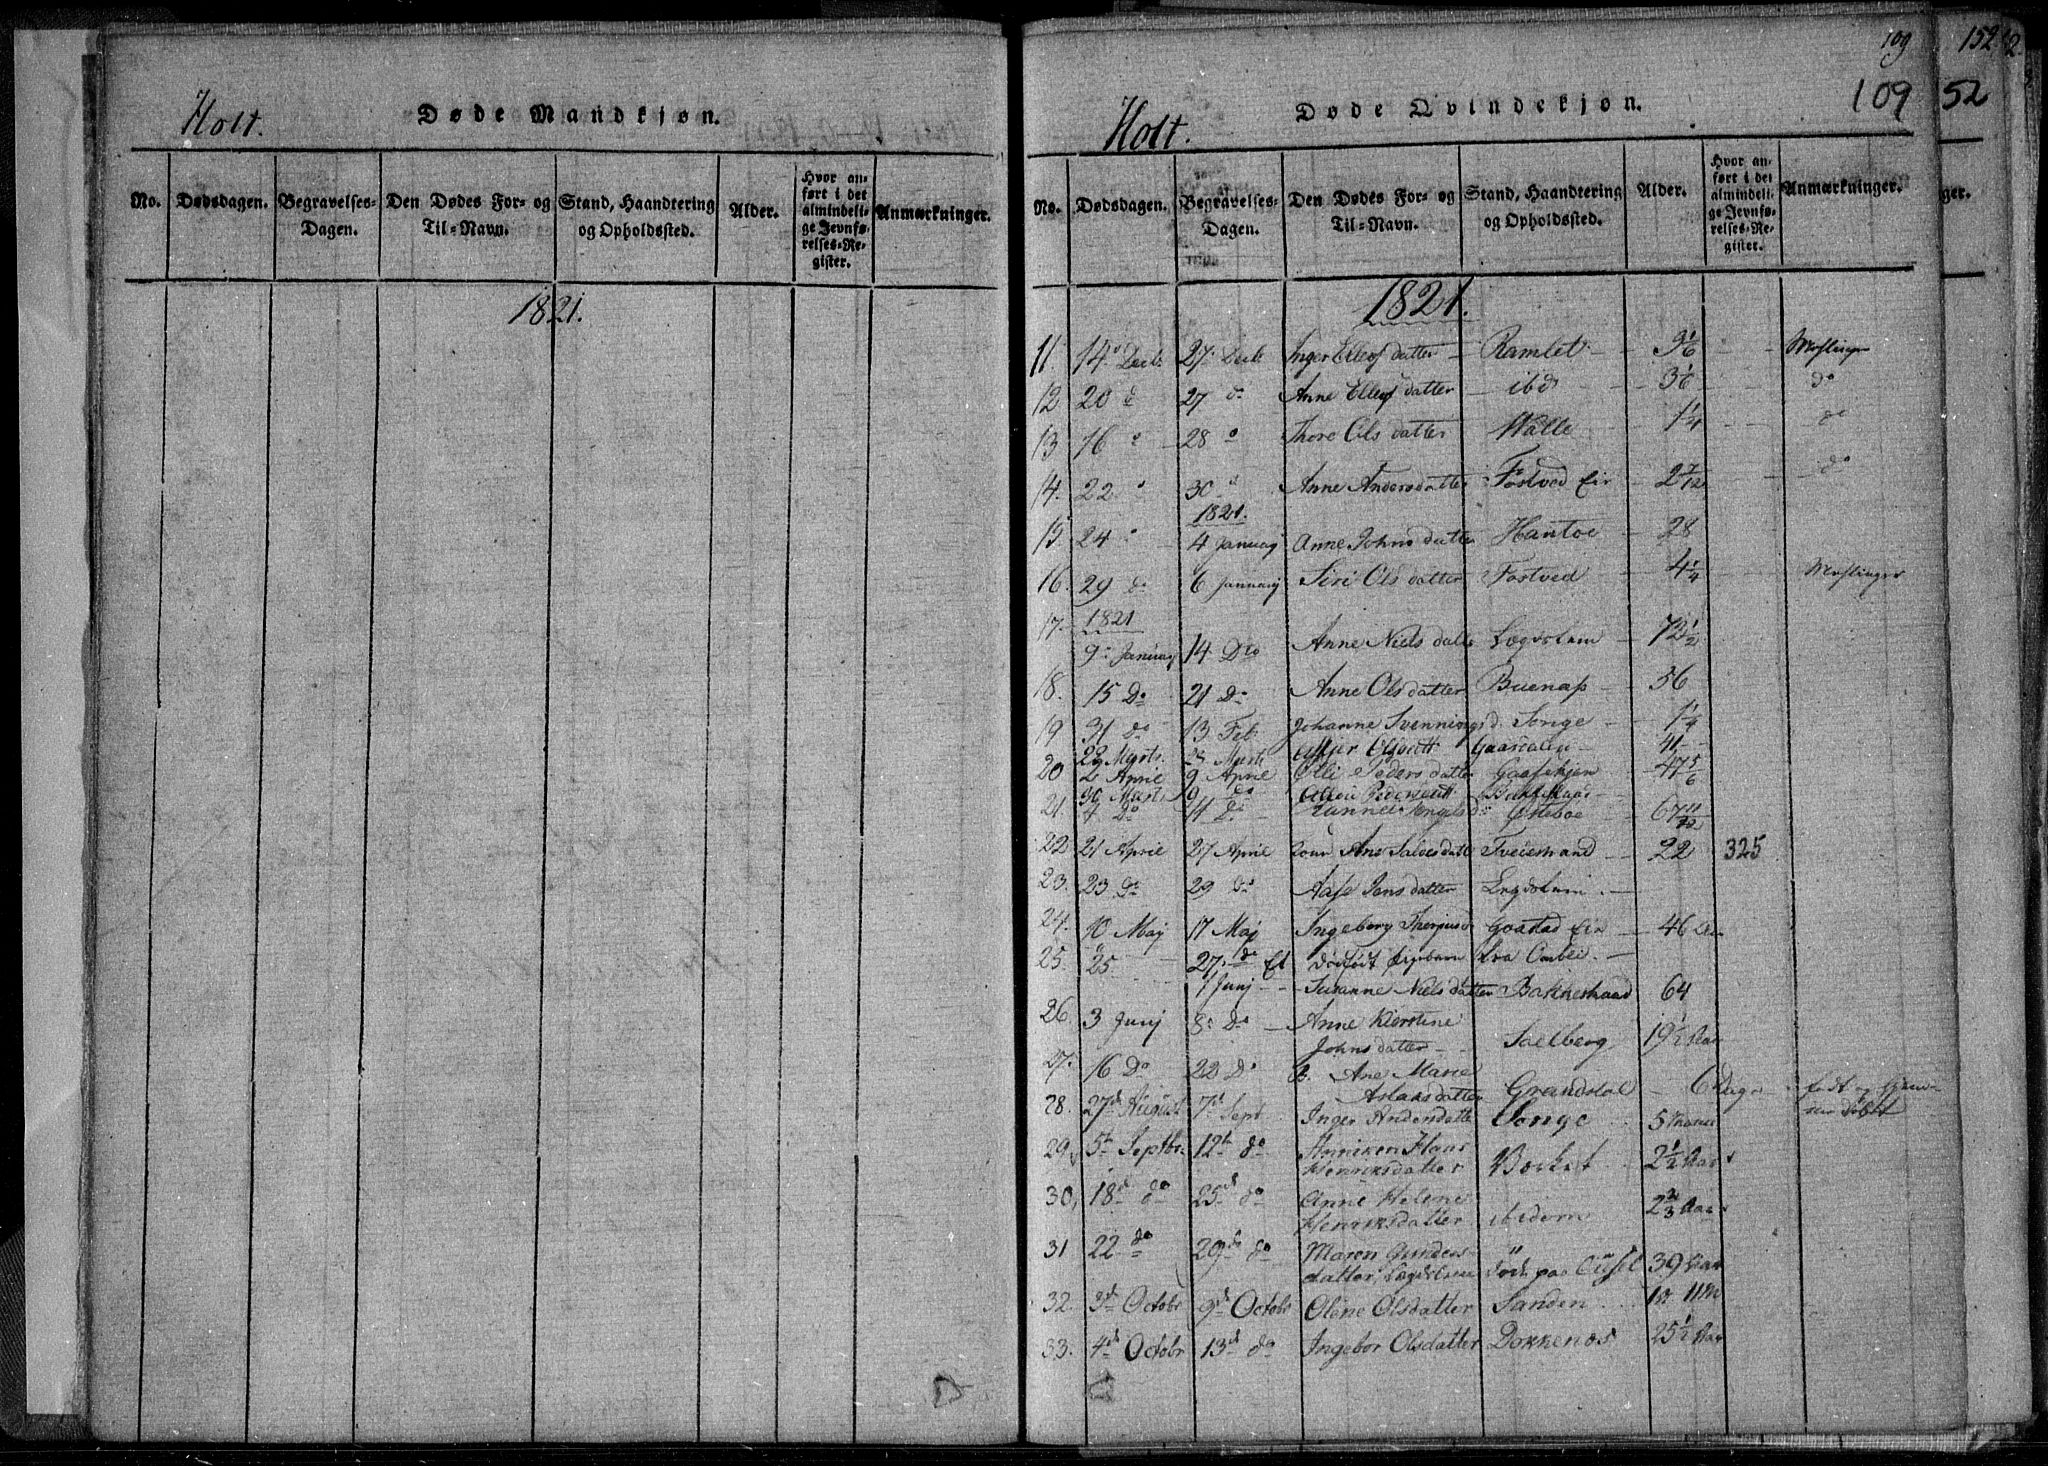 109 152
109 52
Holt.
Døde Mandkjøn.
No. Dødsdagen. Begravelses-Dagen. Den Dødes For- og Til-Navn. Stand, Haandtering og Opholdssted. Alder. Hvor anført i det almindelige Jevnførelses-Register. Anmærkninger.
1821.
Holt.
Døde Qvindekjøn.
No. Dødsdagen. Begravelses-Dagen. Den Dødes For- og Til-Navn. Stand, Haandtering og Opholdssted. Alder. Hvor anført i det almindelige Jevnførelses-Register. Anmærkninger.
1821.
11. 14 Decb. 27. Decb Inger Ellefsdatter Ramlet 3 1/6 Meslinger
12 20 d 27 do Anne Ellefsdatter ibd 3 1/6 do
13 16 28 Thore Olsdatter Walle 1 1/4 do
14. 22 30 Anne Andersdatter Fostved Eir 2 7/12 do
1821.
15. 24 4 Januarj Anne Johnsdatter Hantoe 28
16. 29 do 6 Januarj Siri Olsdatter Fostved 4 1/4 Meslinger
17. 1821
9 Januarj 14 Do Anne Nielsdatter Lægdslem 72 1/2
18. 15 Do 21 Do Anne Olsdatter Buenæs 56
19 31 do 13 Feb. Johanne Svenningsd. Songe 1 1/4
22 Marts. Marts 41
20 2 April 9 April Olli Pedersdatter 47 5/6
30 Marts 9 do
21. 7 Do 11 Do Østeboe 67 11/12
22 21 April 27 April Ane Salvesdatt Tveiestrand 22 325
23. 23 do 29 do Aase Jensdatter Legdslem
24. 10 Maj 17 Maj Ingeborg Goastad Eir 46
25. 25 27 do Et dødfødt Pigebarn fra
1 Junj Susanne Nielsdatter Bakkestraad 64
26 3 Junj 8 Do Anne Kierstine
Johnsdatter Soelberg 19 1/2 Aar
27. 16 Do 22 Do Ane Marie
Aslaksdatter Grandstøl 6 Dage født og
28. 27d August 7d Sept Inger Andersdatter Songe 5
29. 5te Septbr. 12te do Anniken Flaae
Henriksdatter Værket 2 1/2 Aar
30, 18d do 25d do Anne Helene
Henriksdatter ibidem 2 2/3 Aar
31 22 do 29d do Maren Gunders-
datter, Lægdslem død paa 39 Aar
32. 3d Octobr 9d Octobr Olene Olsdatter Sanden 11M
33. 4d Octobr 13d do Ingebor Olsdatter Dokkenæs 25 1/2 Aar